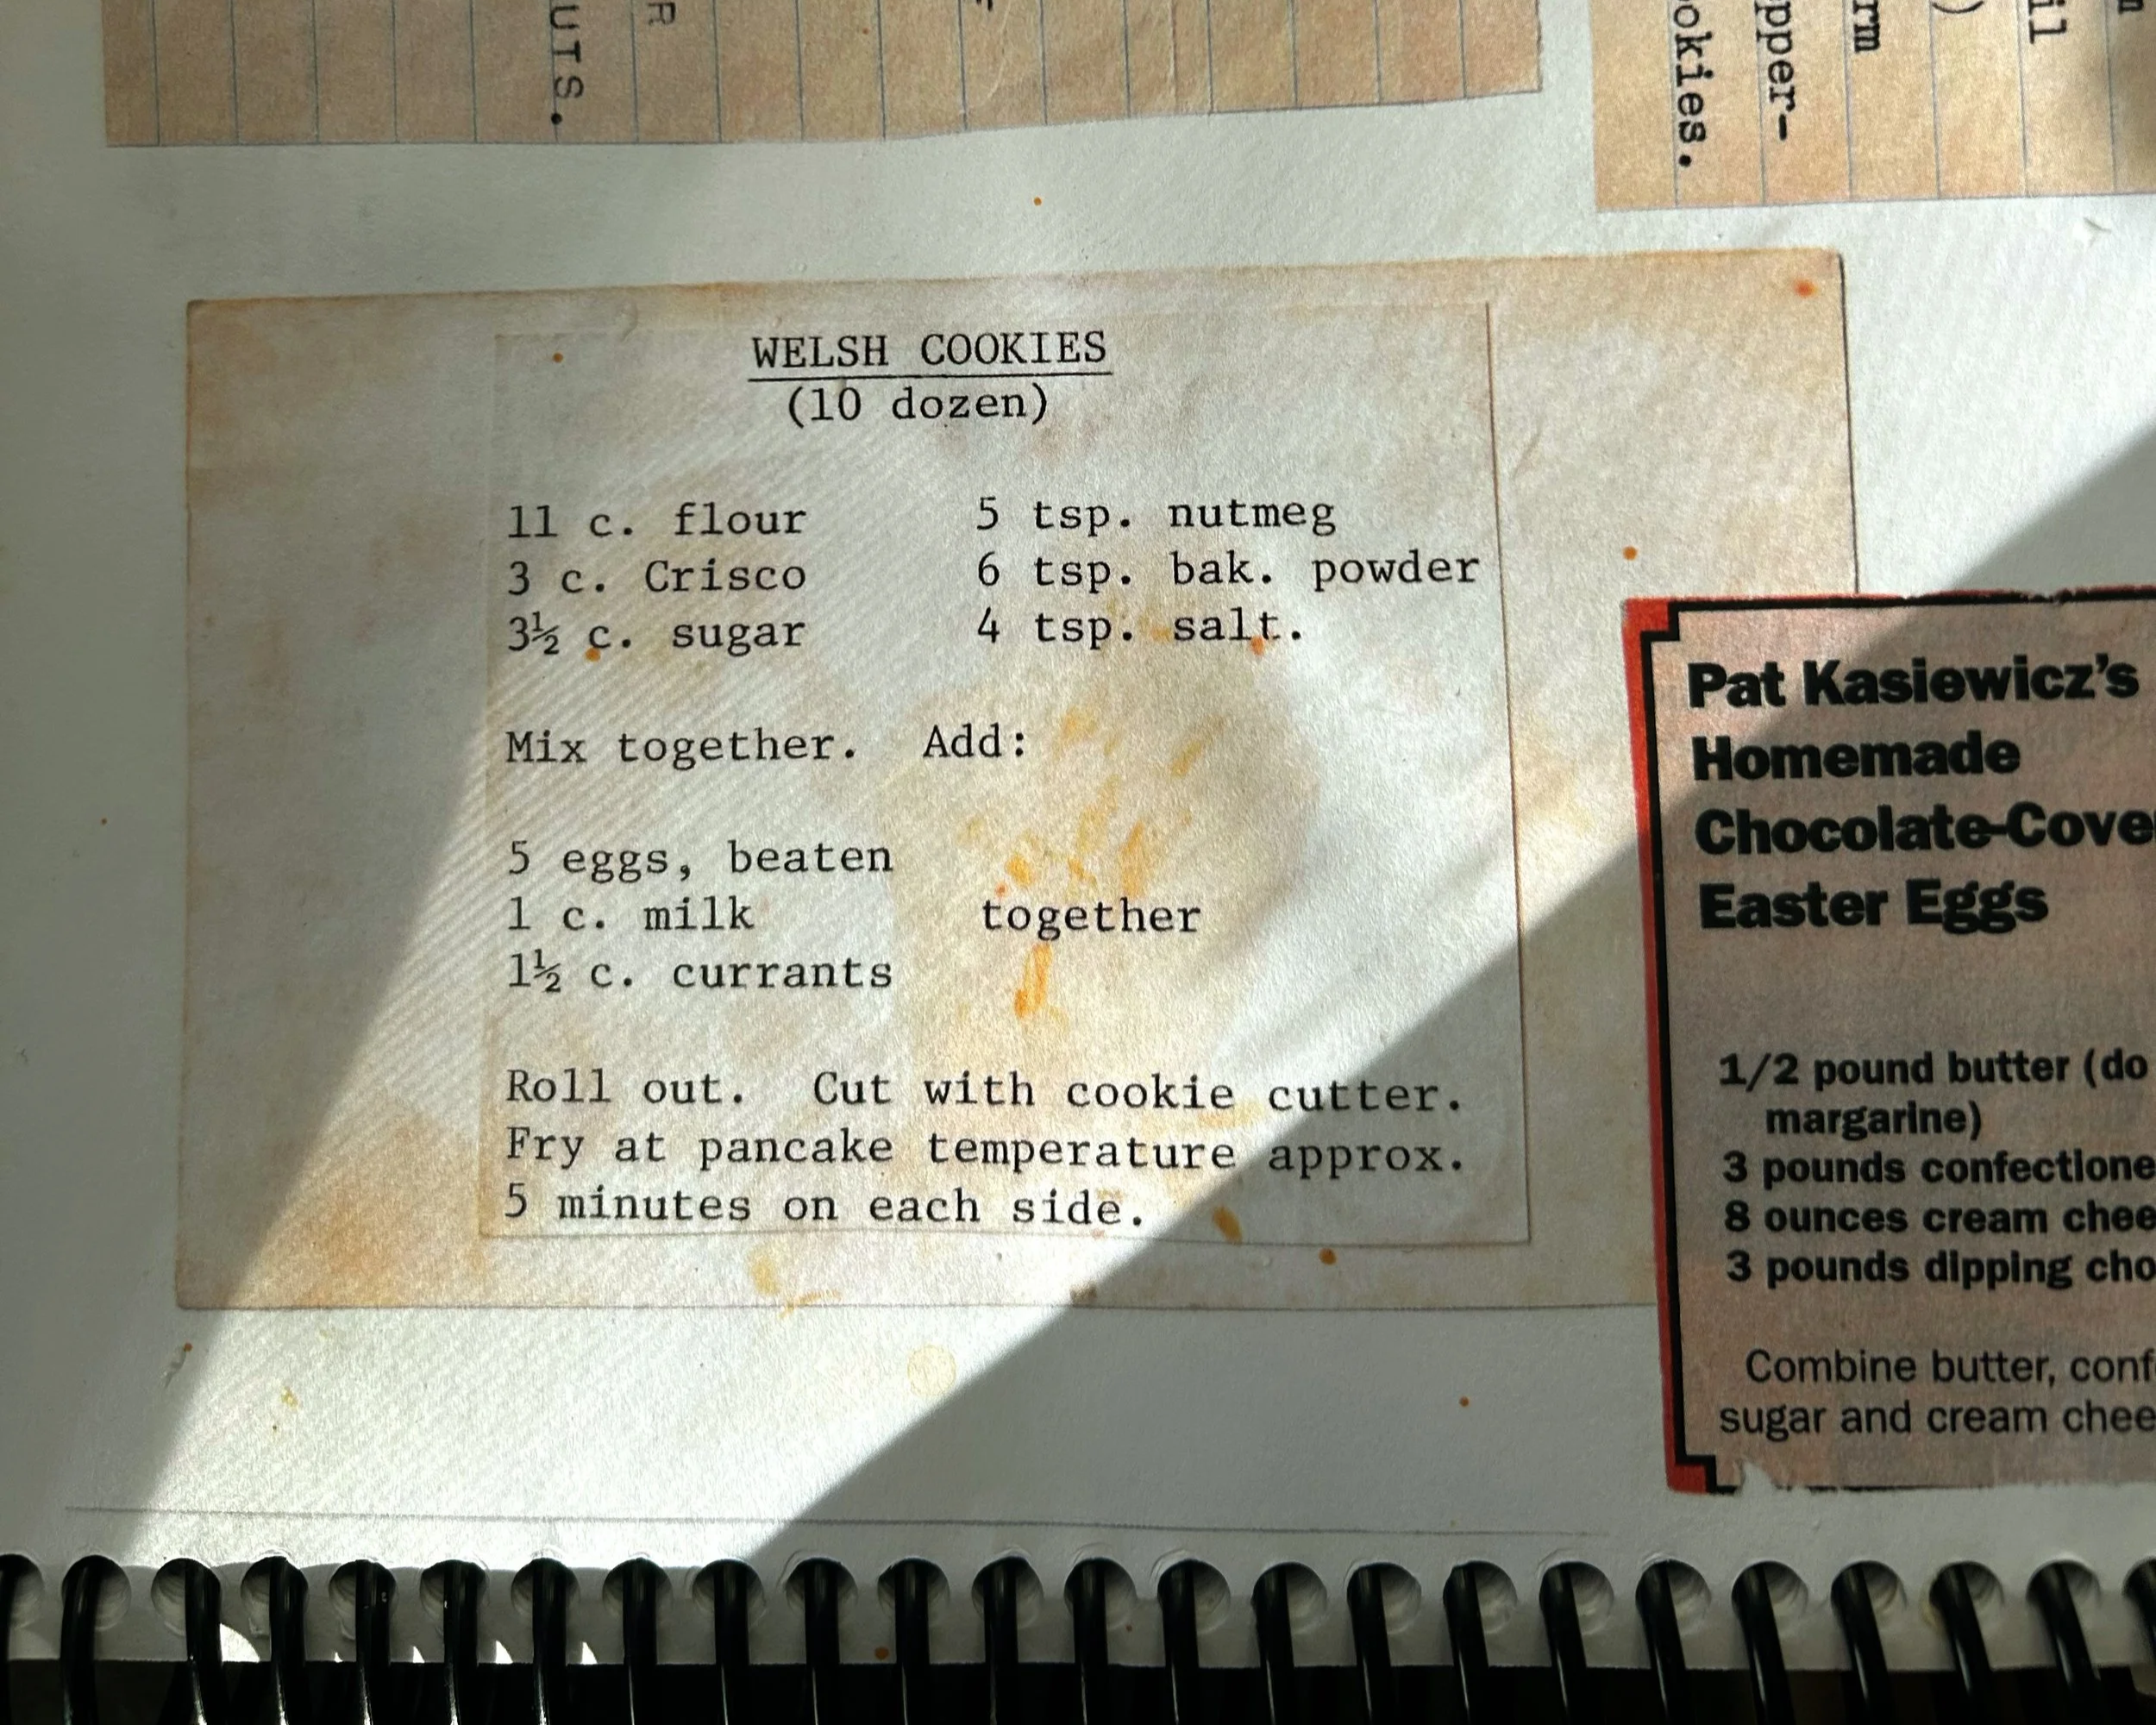 UTS.
R
okies.
pper-
rm
)
il
WELSH COOKIES
(10 dozen)
11 c. flour 5 tsp. nutmeg
3 c. Crisco 6 tsp. bak. powder
3½ c. sugar 4 tsp. salt.
Mix together. Add:
5 eggs, beaten
1 c. milk together
1½ c. currants
Roll out. Cut with cookie cutter.
Fry at pancake temperature approx.
5 minutes on each side.
Pat Kasiewicz's
Homemade
Chocolate-Cove
Easter Eggs
1/2 pound butter (do
margarine)
3 pounds confectione
8 ounces cream chee
3 pounds dipping cho
Combine butter, conf
sugar and cream chee